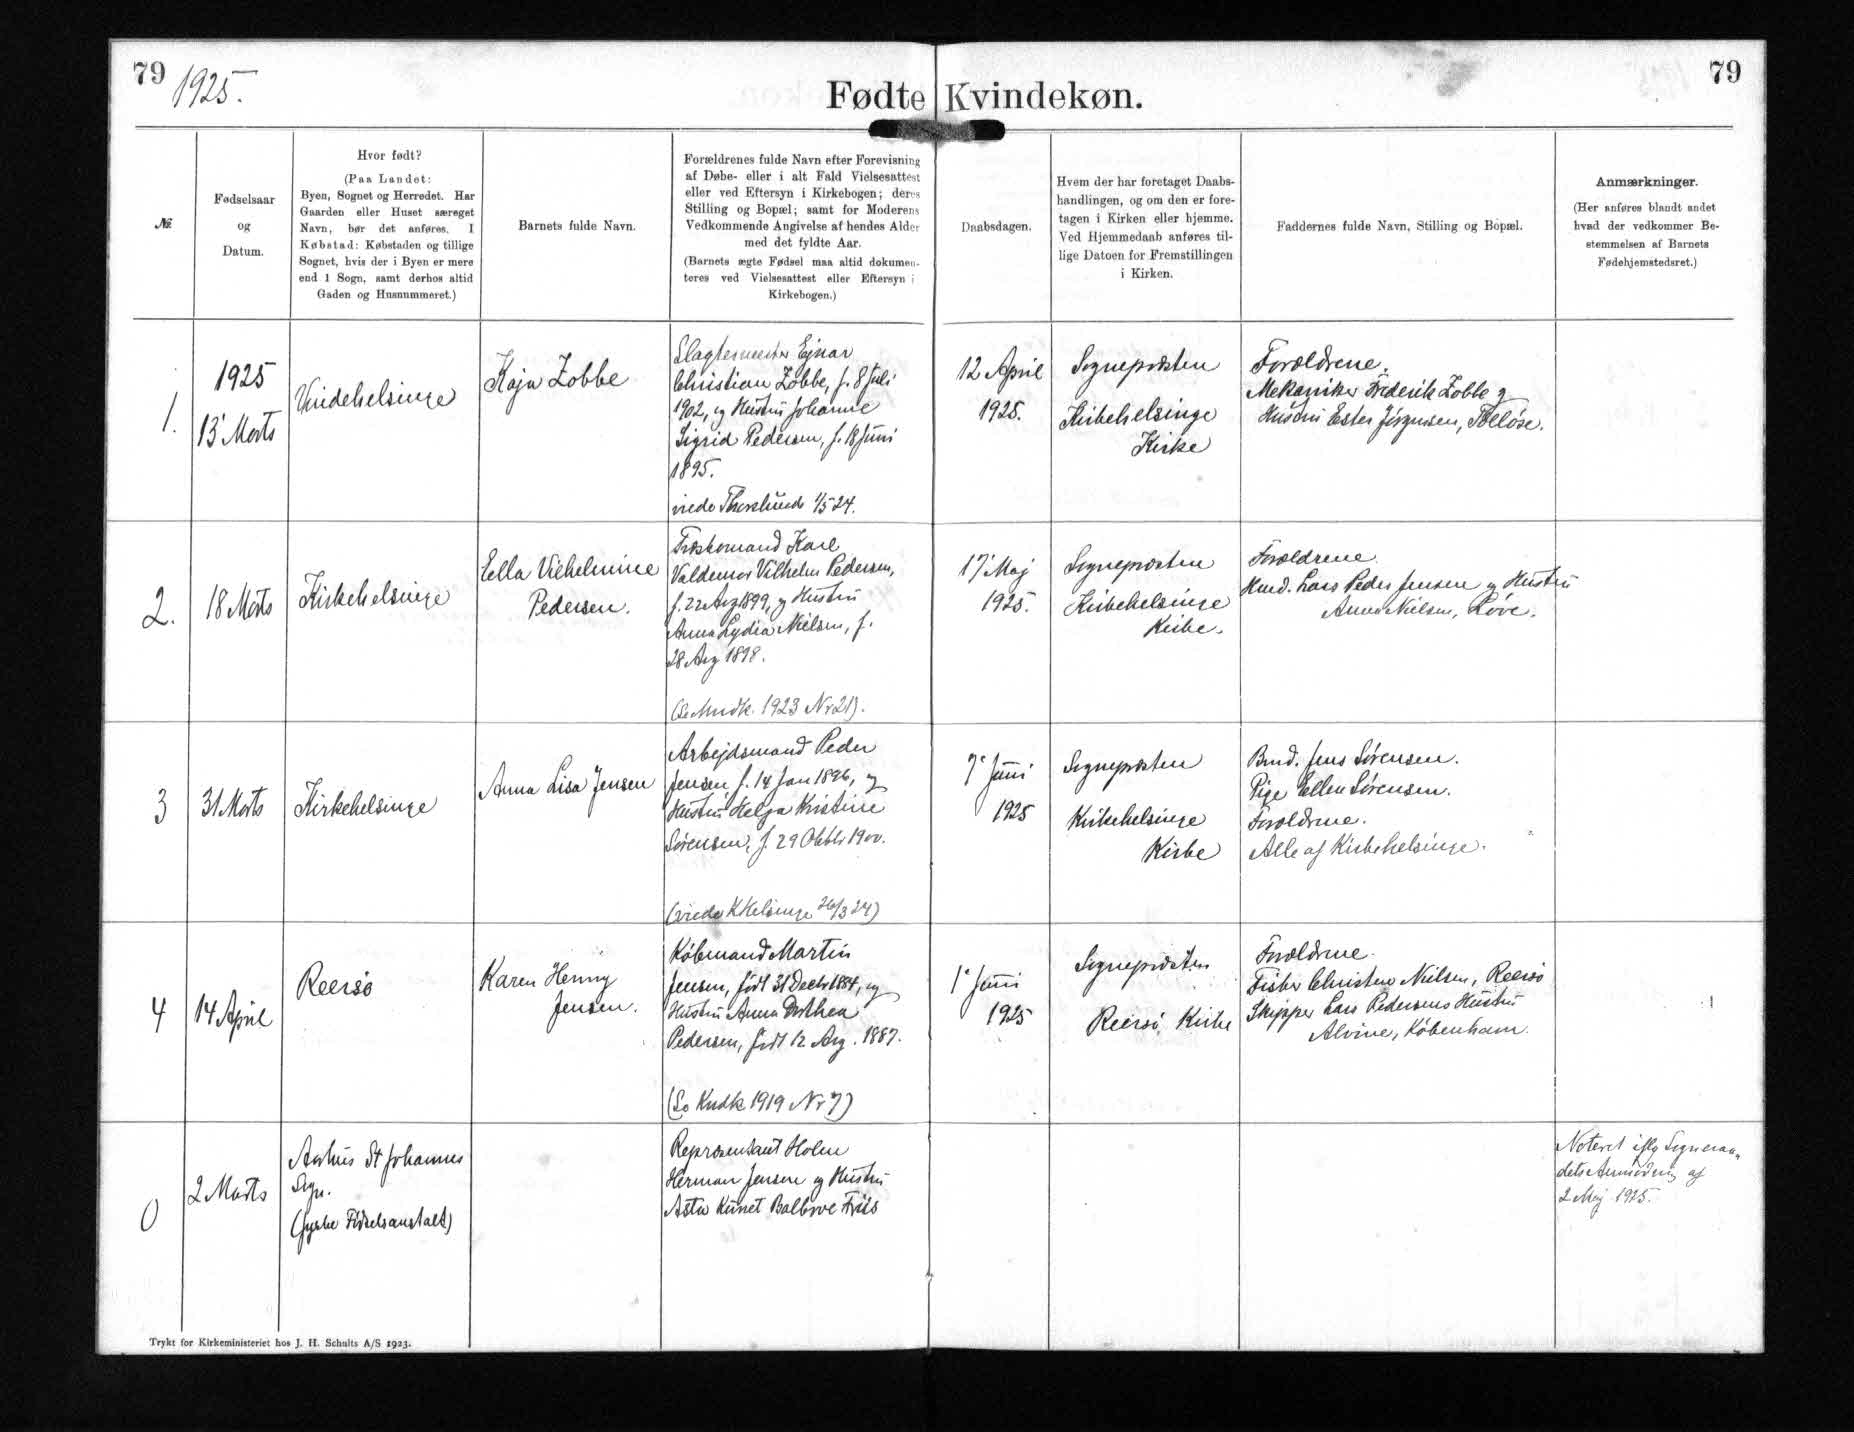 79
1925.
Fødte Kvindekøn.
79
№
Fødselsaar
og
Datum.
Hvor født?
(Paa Landet:
Byen, Sognet og Herredet. Har
Gaarden eller Huset særeget
Navn, bør det anføres. I
Købstad: Købstaden og tillige
Sognet, hvis der i Byen er mere
end 1 Sogn, samt derhos altid
Gaden og Husnummeret.)
Barnets fulde Navn.
Forældrenes fulde Navn efter Forevisning
af Døbe- eller i alt Fald Vielsesattest
eller ved Eftersyn i Kirkebogen; deres
Stilling og Bopæl; samt for Moderens
Vedkommende Angivelse af hendes Alder
med det fyldte Aar.
(Barnets ægte Fødsel maa altid dokumen-
teres ved Vielsesattest eller Eftersyn i
Kirkebogen.)
Daabsdagen.
Hvem der har foretaget Daabs-
handlingen, og om den er fore-
tagen i Kirken eller hjemme.
Ved Hjemmedaab anføres til-
lige Datoen for Fremstillingen
i Kirken.
Faddernes fulde Navn, Stilling og Bopæl.
Anmærkninger.
(Her anføres blandt andet
hvad der vedkommer Be-
stemmelsen af Barnets
Fødehjemstedsret.)
1.
1925
13' Marts
Vindehelsinge
Kaja Zobbe
Slagtermester Ejnar
Christian Zobbe, f. 8 Juli
1902, og Hustru Johanne
Sigrid Pedersen, f. 18 Juni
1895.
viede Thorslunde 1/5 24.
12 April
1925.
Sognepræsten
Kirkehelsinge
Kirke
Forældrene.
Mekaniker Frederik Zobbe og
Hustru Ester Jørgensen, Tølløse.
2.
18 Marts
Kirkehelsinge
Ella Vilhelmine
Pedersen.
Træskomand Karl
Valdemar Vilhelm Pedersen,
f. 22 Aug 1899, og Hustru
Anna Lydia Nielsen, f.
28 Aug 1898.
(Se Mndk. 1923 Nr 21).
17' Maj
1925.
Sognepræsten
Kirkehelsinge
Kirke.
Forældrene
Husmd. Lars Peder Jensen og Hustru
Anna Nielsen, Løve.
3
31 Marts
Kirkehelsinge
Anna Lisa Jensen
Arbejdsmand Peder
Jensen f. 14 Jan 1896, og
Hustru Helga Kristine
Sørensen, f. 29 Oktbr 1900.
(viede K Helsinge 26/3 24)
7' Juni
1925
Sognepræsten
Kirkehelsinge
Kirke
Bmd. Jens Sørensen.
Pige Ellen Sørensen.
Forældrene.
Alle af Kirkehelsinge.
4
14 April
Reersø
Karen Henny
Jensen.
Købmand Martin
Jensen, født 31 Decbr 1884, og
Hustru Anna Dorthea
Pedersen, født 12 Aug. 1887.
(Se Kndk 1919 Nr 7)
1' Juni
1925
Sognepræsten
Reersø Kirke
Forældrene
Fisker Christen Nielsen, Reersø
Skipper Lars Pedersens Hustru
Alvine, København.
0
2 Marts
Aarhus St Johannes
Sogn.
(Jyske Fødselsanstalt)
Repræsentant Holm
Herman Jensen og Hustru
Asta Kunet Balbroe Friis
Noteret iflg Sogneraa-
dets Anmodning af
2 Maj 1925.
Trykt for Kirkeministeriet hos J. H. Schultz A/S 1923.